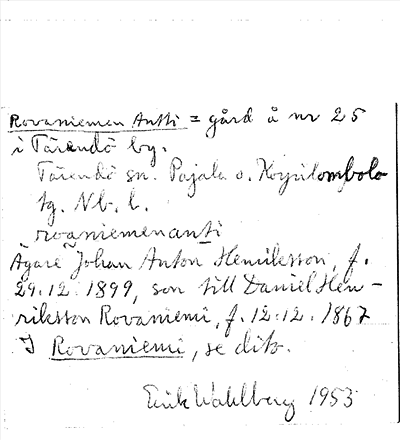 Rovaniemen Antti = gård å nr 25
i Tärendö by.
Tärendö sn. Pajala o. Korpilombolo
tg. Nb. l.
rovaniemenanti
Ägare Johan Anton Henriksson, f.
29.12.1899, son till Daniel Hen-
riksson Rovaniemi, f. 12.12.1867
J Rovaniemi, se dito.
Erik Wahlberg 1953